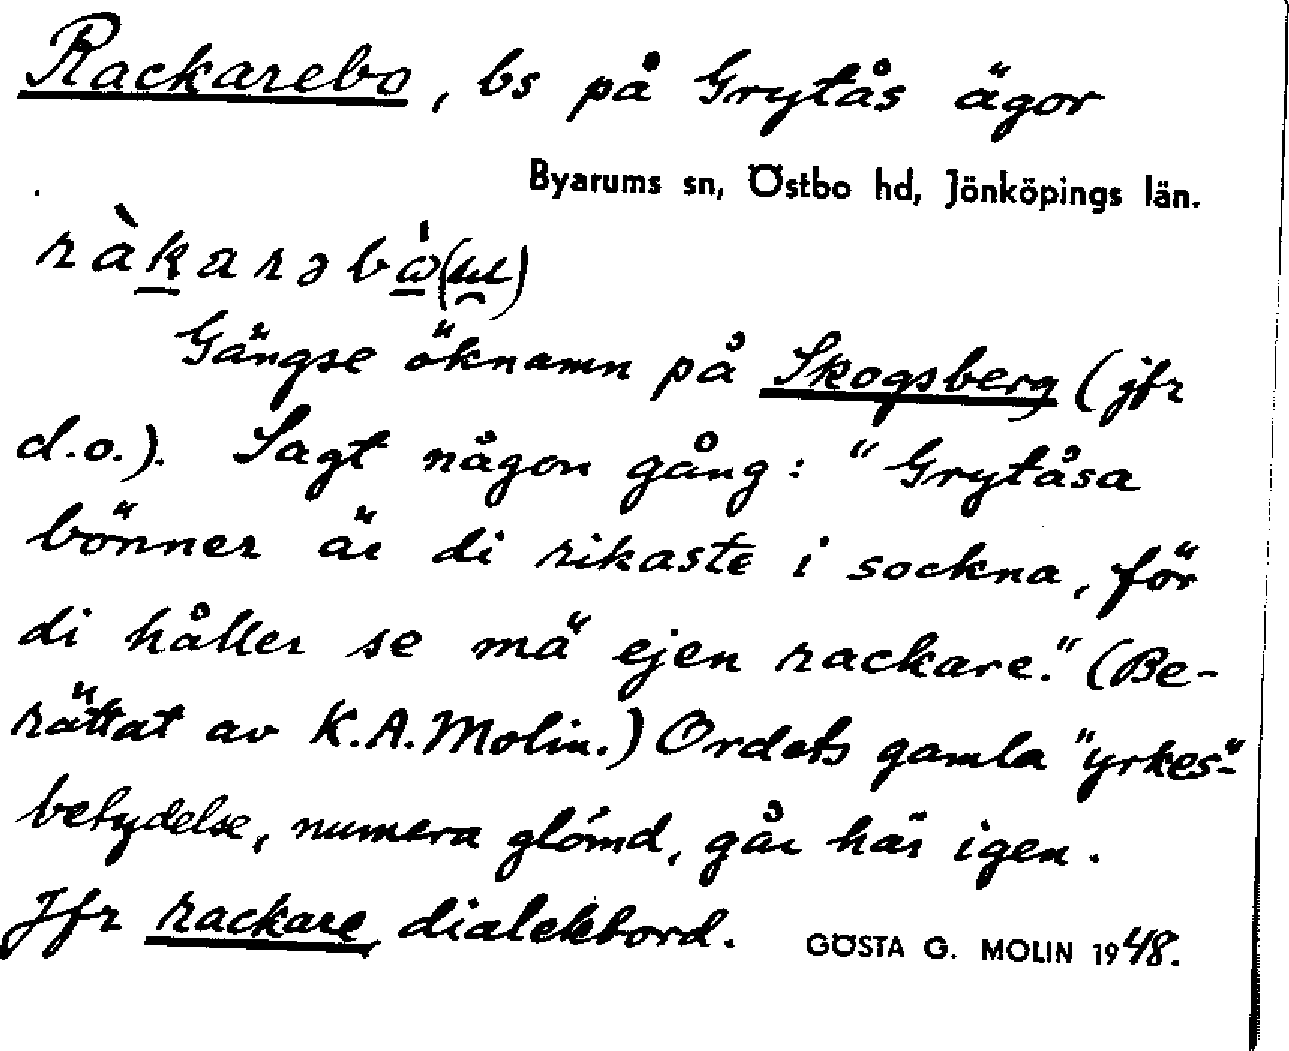 Rackarebo, bs på Grytås ägor
Byarums sn, Östbo hd, Jönköpings län.
ràkarəbó̱(ɯt)
Gängse öknamn på Skogsberg (jfr
d.o.). Sagt någon gång: "Grytåsa
bönner är di rikaste i sockna, för
di håller se mä ejen rackare." (Be-
rättat av K.A. Molin.) Ordets gamla "yrkes"-
betydelse, numera glömd, går här igen.
Jfr rackare, dialektord. GÖSTA G. MOLIN 1948.